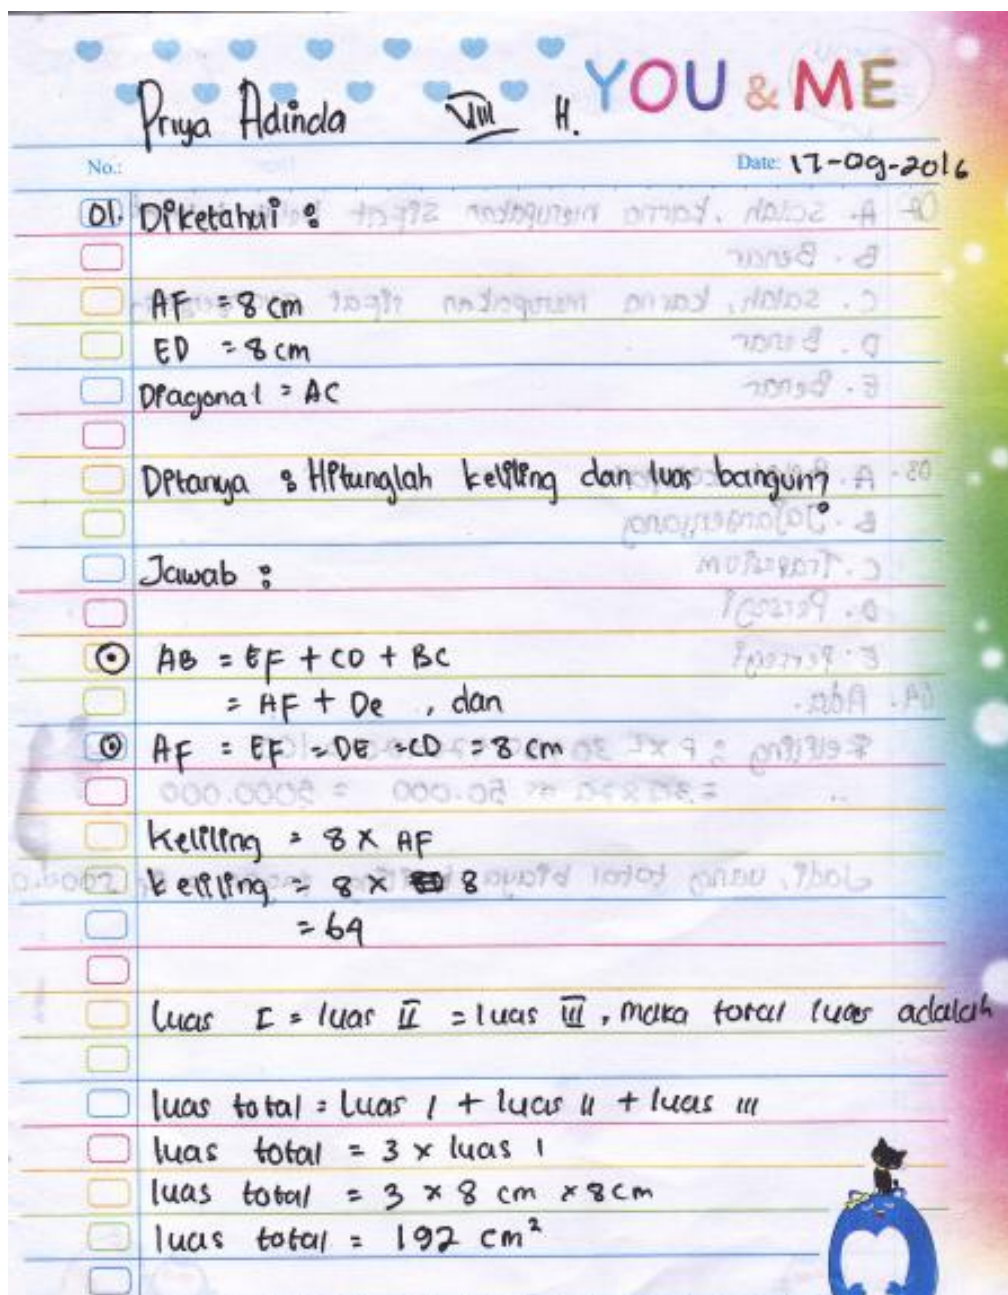 YOU & ME
Priya Adinda VIII H.
No.:
Date: 17-09-2016
01. Diketahui :
AF = 8 cm
ED = 8 cm
Diagonal = AC
Ditanya : Hitunglah keliling dan luas bangun?
Jawab :
AB = EF + CD + BC
= AF + De , dan
AF = EF = DE = CD = 8 cm
keliling = 8 x AF
keliling = 8 x 8
= 64
luas I = luas II = luas III, maka total luas adalah
luas total = Luas I + luas II + luas III
luas total = 3 x luas I
luas total = 3 x 8 cm x 8cm
luas total = 192 cm²